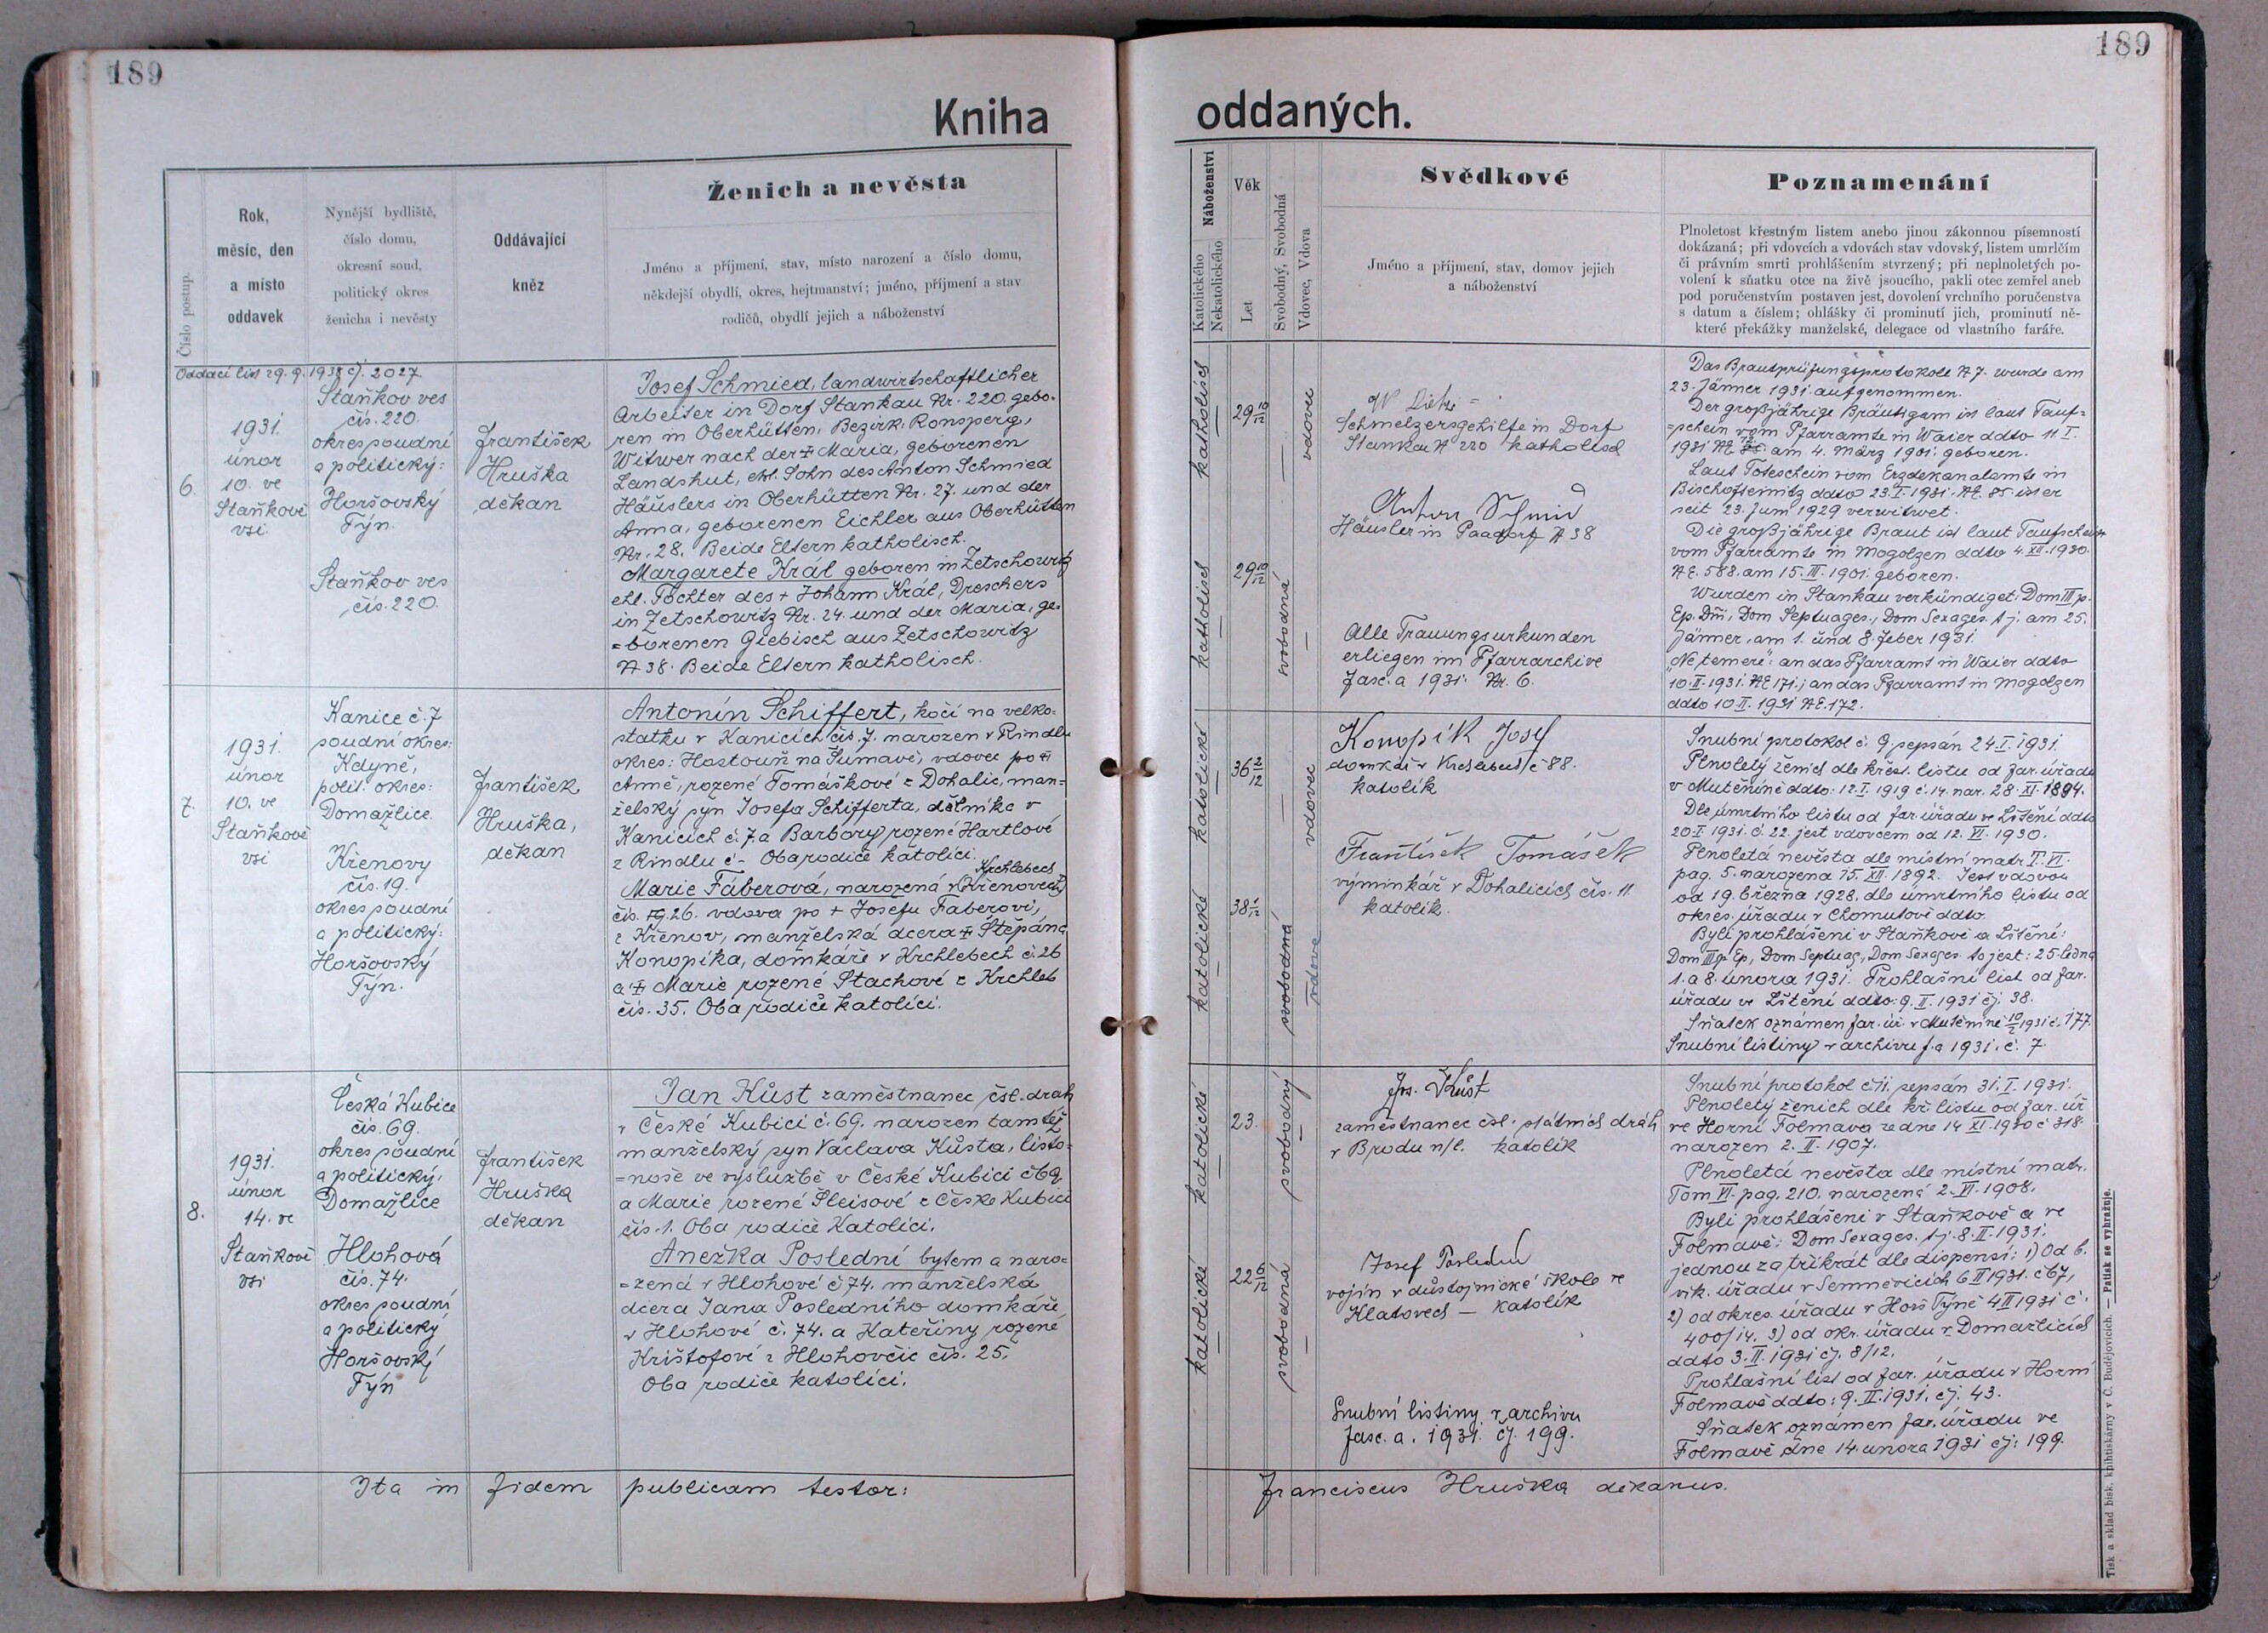 189
189
Kniha
oddaných.
Číslo postup.
Rok,
měsíc, den
a místo
oddavek
Nynější bydliště,
číslo domu,
okresní soud,
politický okres
ženicha i nevěsty
Oddávající
kněz
Ženich a nevěsta
Jméno a příjmení, stav, místo narození a číslo domu,
někdejší obydlí, okres, hejtmanství; jméno, příjmení a stav
rodičů, obydlí jejich a náboženství
Náboženství
Katolického
Nekatolického
Věk
Let
Svobodný, Svobodná
Vdovec, Vdova
Svědkové
Jméno a příjmení, stav, domov jejich
a náboženství
Poznamenání
Plnoletost křestným listem anebo jinou zákonnou písemností
dokázaná; při vdovcích a vdovách stav vdovský, listem umrlčím
či právním smrti prohlášením stvrzený; při neplnoletých po-
volení k sňatku otce na živě jsoucího, pakli otec zemřel aneb
pod poručenstvím postaven jest, dovolení vrchního poručenstva
s datum a číslem; ohlášky či prominutí jich, prominutí ně-
které překážky manželské, delegace od vlastního faráře.
Oddací list 29. 9. 1938 čj. 2027.
6.
1931.
únor
10. ve
Staňkově
vsi.
Staňkov ves
čís. 220.
okres soudní
a politický:
Horšovský
Týn.
Staňkov ves
čís. 220.
František
Hruška
děkan
Josef Schmied, landwirtschaftlicher
Arbeiter in Dorf Stankau Nr. 220. gebo-
ren in Oberhütten, Bezirk: Ronsperg,
Witwer nach der + Maria, geborenen
Landshut, ehl. Sohn des Anton Schmied
Häuslers in Oberhütten Nr. 27. und der
Anna, geborenen Eichler aus Oberhütten
Nr. 28. Beide Eltern katholisch.
Margarete Král geboren in Zetschowitz
ehl. Tochter des + Johann Král, Dreschers
in Zetschowitz Nr. 24. und der Maria, ge-
=borenen Giebisch aus Zetschowitz
N 38. Beide Eltern katholisch.
katholisch
katholisch
29 10/12
29 10/12
vdovec
svobodná
Schmelzersgehilfe in Dorf
Stankau N 220 katholisch
Anton Schmid
Häusler in Paadorf N 38
Alle Trauungsurkunden
erliegen im Pfarrarchive
Fasc. a 1931. Nr. 6.
Das Brautprüfungsprotokoll N 7. wurde am
23. Jänner 1931. aufgenommen.
Der großjährige Bräutigam ist laut Tauf=
=schein vom Pfarramte in Waier ddto 11. I.
1931 NE am 4. März 1901. geboren.
Laut Toteschein vom Erzdekanalamte in
Bischofteinitz ddto 23. I. 1931. NE. 85. ist er
seit 23. Juni 1929 verwitwet.
Die großjährige Braut ist laut Taufschein
vom Pfarramte in Mogolzen ddto 4. XII. 1930.
NE. 588. am 15. III. 1901. geboren.
Wurden in Stankau verkündiget: Dom III p.
Ep. Dñi, Dom Septuages., Dom Sexages. tj. am 25.
Jänner, am 1. und 8. Feber 1931.
„Ne temere": an das Pfarramt in Waier ddto
10. II. 1931. NE 171.; an das Pfarramt in Mogolzen
ddto 10. II. 1931 NE. 172.
7.
1931.
únor
10. ve
Staňkově
vsi
Kanice č. 7
soudní okres:
Kdyně,
polit. okres:
Domažlice.
Křenovy
čís. 19.
okres soudní
a politický:
Horšovský
Týn.
František
Hruška,
děkan
Antonín Schiffert, kočí na velko-
statku v Kanicích čís. 7. narozen v Rindlu
okres: Hostouň na Šumavě, vdovec po +
Anně, rozené Tomáškové z Dohalic, man-
želský syn Josefa Schifferta, dělníka v
Kanicích č. 7. a Barbory rozené Hartlové
z Rindlu č - Oba rodiče katolíci.
Krchlebech
Marie Fáberová, narozená v (Křenovech)
čís. 19. 26. vdova po + Josefu Faberovi,
z Křenov, manželská dcera + Štěpána
Konopíka, domkáře v Krchlebech č. 26
a + Marie rozené Stachové z Krchleb
čís. 35. Oba rodiče katolíci.
katolické
katolické
36 2/12
38 1/12
vdovec
svobodná
vdova
Konopík Josef
domkář v Krchlebech č 88.
katolík
František Tomášek
výminkář v Dohalicích čís. 11
katolík.
Snubní protokol č. 9. sepsán 24. I. 1931.
Plnoletý ženich dle křest. listu od far. úřadu
v Mutěníně ddto: 12. I. 1919 č. 14. nar. 28. XI. 1894.
Dle úmrtního listu od far. úřadu ve Lštění ddto
20. I. 1931. č. 22. jest vdovcem od 12. VI. 1930.
Plnoletá nevěsta dle místní matr. T. VI.
pag. 5. narozena 15. XII. 1892. Jest vdovou
od 19. března 1928. dle úmrtního listu od
okres. úřadu v Chomutově ddto.
Byli prohlášeni v Staňkově a Lštění:
Dom III p. Ep., Dom Septuag., Dom Sexages. to jest: 25. ledna
1. a 8. února 1931. Prohlašní list od far.
úřadu ve Lštění ddto: 9. II. 1931 čj. 38.
Sňatek oznámen far. úř. v Mutěníně 10/2 1931 č. 177.
Snubní listiny v archivu f. a 1931. č. 7.
8.
1931.
únor
14. ve
Staňkově
vsi
Česká Kubice
čís. 69.
okres soudní
a politický:
Domažlice
Hlohová
čís. 74.
okres soudní
a politický
Horšovský
Týn
František
Hruška
děkan
Jan Kůst zaměstnanec čsl. drah
v České Kubici č. 69. narozen tamtéž
manželský syn Václava Kůsta, listo=
=noše ve výslužbě v České Kubici č 69
a Marie rozené Pleisové z České Kubice
čís. 1. Oba rodiče katolíci.
Anežka Poslední bytem a naro=
=zená v Hlohové č 74. manželská
dcera Jana Posledního domkáře
v Hlohové č. 74. a Kateřiny rozené
Krištofové z Hlohovčic čís. 25.
Oba rodiče katolíci.
katolické
katolické
23.
22 6/12
svobodný
svobodná
Jos. Kůst
zaměstnanec čsl. státních dráh
v Brodu n/l. katolík
Josef Poslední
vojín v důstojnické škole ve
Klatovech — katolík
Snubní listiny v archivu
fasc. a. 1931. čj. 199.
Snubní protokol č 11. sepsán 31. I. 1931.
Plnoletý ženich dle kř. listu od far. úř
ve Horní Folmava ze dne 14 XI. 1930 č 318.
narozen 2. II. 1907.
Plnoletá nevěsta dle místní matr.
Tom VI. pag. 210. narozená 2. VI. 1908.
Byli prohlášeni v Staňkově a ve
Folmavě: Dom Sexages. tj. 8. II. 1931.
jednou za třikrát dle dispensí: 1) Od b.
vik. úřadu v Semněvicích 6. II 1931. č 67,
2) od okres. úřadu v Horš Týně 4 II 1931 č.
400/14. 3) od okr. úřadu v Domažlicích
ddto 3. II. 1931 čj. 8/12.
Prohlašní list od far. úřadu v Horní
Folmavě ddto: 9. II. 1931. čj. 43.
Sňatek oznámen far. úřadu ve
Folmavě dne 14. února 1931 čj: 199.
Ita in fidem publicam testor:
Franciscus Hruška dekanus.
Tisk a sklad bisk. knihtiskárny v Č. Budějovicích. — Patisk se vyhražuje.